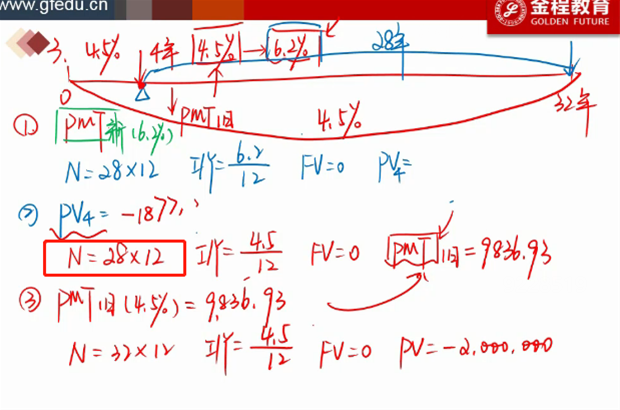 www.gfedu.cn
金程教育
GOLDEN FUTURE
3. 4.5% 4年 4.5% → 6.2% 28年
0 PMT旧 4.5% 32年
① PMT新(6.2%)
N=28×12 I/Y=6.2/12 FV=0 PV4=
② PV4=-1877,
N=28×12 I/Y=4.5/12 FV=0 PMT旧=9836.93
③ PMT旧(4.5%)=9,836.93
N=32×12 I/Y=4.5/12 FV=0 PV=-2,000,000